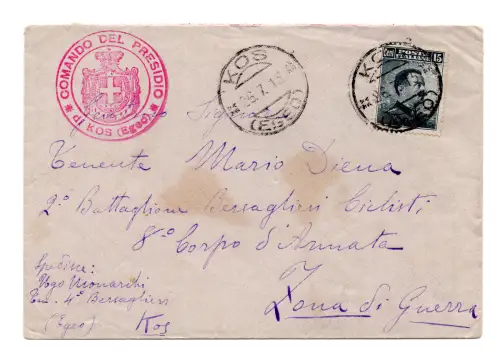 COMANDO DEL PRESIDIO
* di KOS (Egeo) *
KOS
(EGEO)
Cent. POSTE ITALIANE 15
KOS
Signor
Tenente Mario Diena
2º Battaglione Bersaglieri Ciclisti
8º Corpo d'Armata
Zona di Guerra
Spedisce:
Ugo Monarchi
Ten. 4º Bersaglieri
(Egeo) Kos